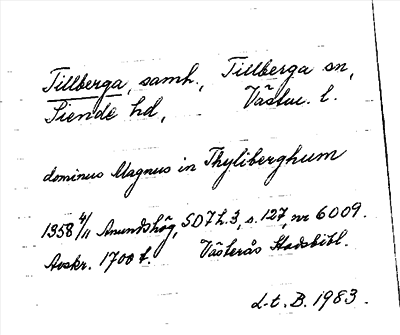 Tillberga, samh., Tillberga sn,
Siende hd, Västm. l.
dominus Magnus in Thyliberghum
1358 4/11 Anundshög, SD 7 h. 3, s. 127, nr 6009.
Avskr. 1700 t. Västerås Stadsbibl.
L-t. B. 1983.